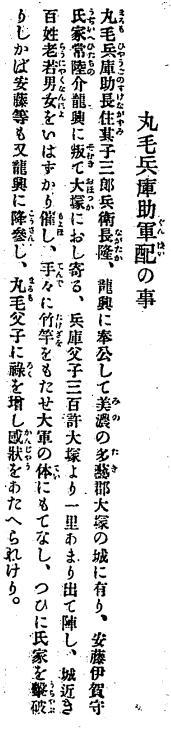 丸毛兵庫助軍配の事
丸毛兵庫助長住其子三郎兵衛長隆、龍興に奉公して美濃の多藝郡大塚の城に有り、安藤伊賀守
氏家常陸介龍興に叛て大塚におし寄る、兵庫父子三百許大塚より一里あまり出て陣し、城近き
百姓老若男女をいはずかり催し、手々に竹竿をもたせ大軍の体にもてなし、つひに氏家を擊破
りしかば安藤等も又龍興に降參し、丸毛父子に祿を增し感狀をあたへられけり。